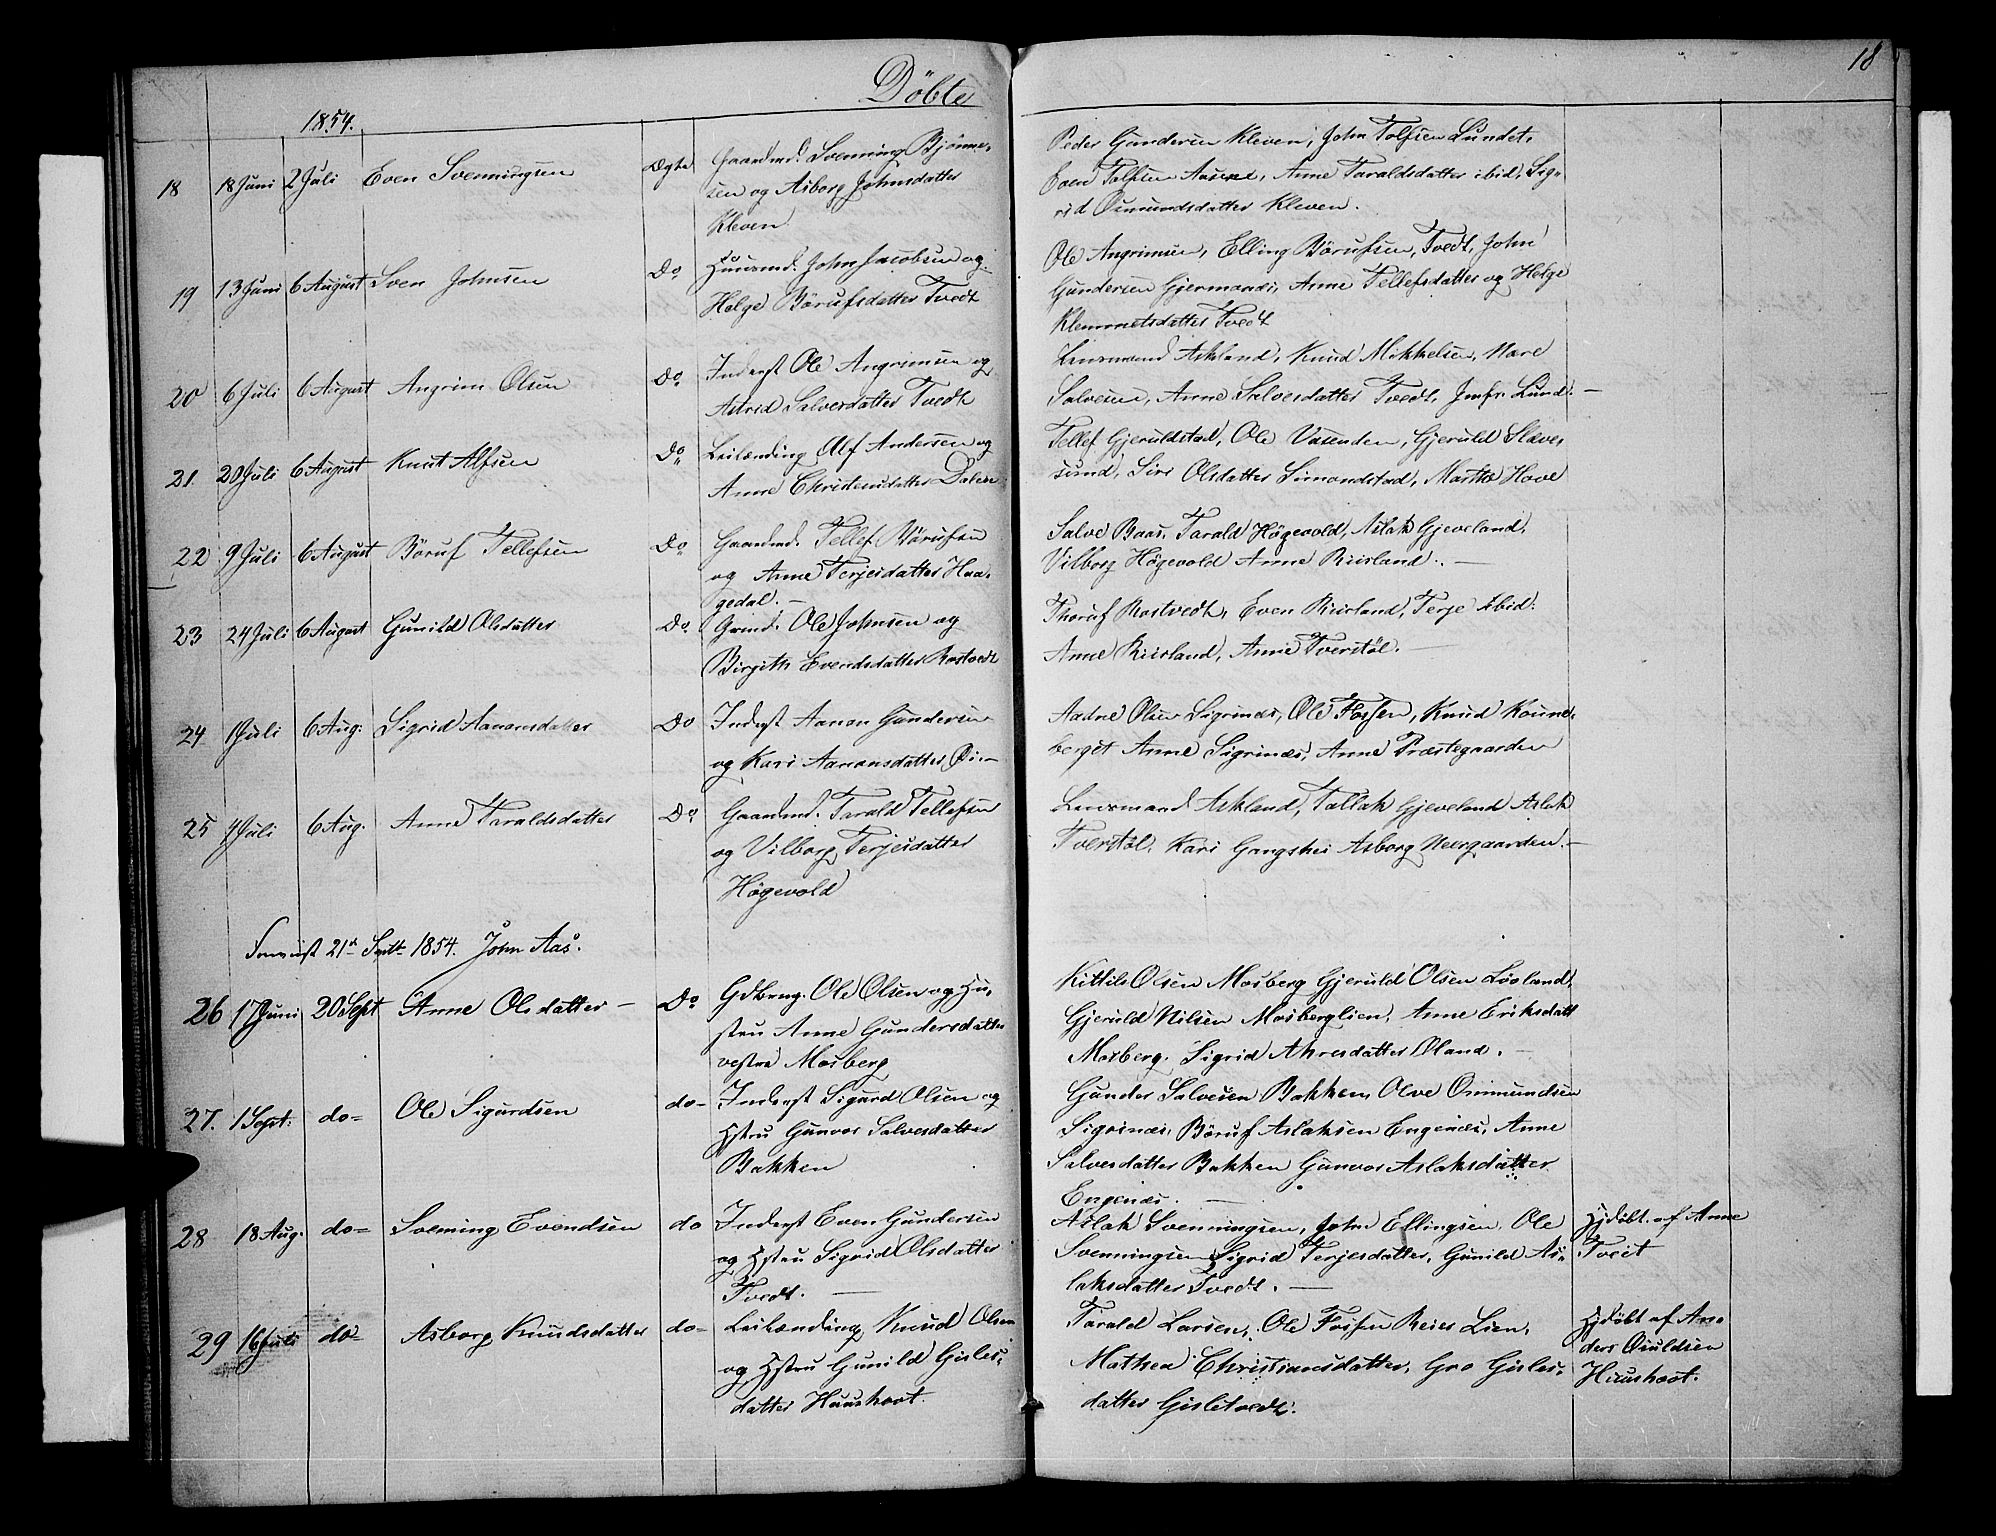 18
Döbte
1854.
18 18 Juni 2 Juli Even Svenningsen Ægte Gaardmd. Svenning Bjønne-
sen og Asborg Johnsdatter
Kleven
Peder Gundersen Kleven, John Tolfsen Lundet,
Even Tolfsen Aasene, Anne Taraldsdatter ibid, Sig-
rid Osmundsdatter Kleven.
19 13 Juni 6 August Sven Johnsen Do Huusmd. John Jacobsen og
Helge Börufsdatter Tvedt
Ole Angrimsen, Elling Börufsen, Tvedt, John
Gundersen Gjermonæs, Anne Tellefsdatter og Helge
Klemmetsdatter Tvedt
20 6 Juli 6 August Angrim Olsen Do Inderst Ole Angrimsen og
Astrid Salvesdatter Tvedt
Lensmand Askland, Knud Mikkelsen, Nare
Salvesen, Anne Salvesdatter Tvedt, Jmfr. Lund. —
21. 20 Juli 6 August Knut Alfsen Do Leilænding Alf Andersen og
Anne Christensdatter Dalene
Tellef Gjeruldstad, Ole Vasenden, Gjeruld Slæve-
sund, Siri Olsdatter Simondstad, Marthe Hove
22 9 Juli 6 August Böruf Tellefsen Do Gaardmd. Tellef Börufsen
og Anne Terjesdatter Haa-
gedal. —
Salve Baas, Tarald Högevold, Aslak Gjeveland,
Vilborg Högevold Anne Riisland. —
23 24 Juli 6 August Gunild Olsdatter Do Grmd. Ole Johnsen og
Birgith Evendsdatter Rostvedt
Thoruf Rostvedt, Even Riisland, Terje ibid:
Anne Riisland, Anne Tverstöl. —
24 1 Juli 6 Aug. Sigrid Aanonsdatter Do Inderst Aanon Gundersen
og Kari Aanonsdatter Öi —
Aadne Olsen Sigrinæs, Ole Fossen, Knud Koune-
berget Anne Sigrinæs, Anne Præstegaarden
25 4 Juli 6 Aug. Anne Taraldsdatter Do Gaardmd. Tarald Tellefsen
og Vilborg Terjesdatter
Högevold
Lensmand Askland, Tallak Gjeveland Aslak
Tverstöl, Kari Gangshei Asborg Neergaarden. —
21de Septbr 1854. John Aas.
26 17 Juni 20 Sept Anne Olsdatter — Do Gdbrug. Ole Olsen og Hu-
stru Anne Gundersdatter
vestre Mosberg
Kittil Olsen Mosberg Gjeruld Olsen Lösland,
Gjeruld Nilsen Mosberglien, Anne Eriksdatt
Mosberg. Sigrid Ahresdatter Oland. —
27. 1 Sept. do— Ole Sigurdsen do— Inderst Sigurd Olsen og
Hstru Gunvor Salvesdatter
Bakken
Gunder Salvesen Bakken, Olve Omundsen
Sigrinæs, Böruf Aslaksen Engenæs, Anne
Salvesdatter Bakken Gunvor Aslaksdatter
Engenæs. —
28 18 Aug. do— Svenning Evendsen do Inderst Even Gundersen
og Hstru Sigrid Olsdatter
Tvedt. —
Aslak Svenningsen, John Ellingsen, Ole
Svenningsen Sigrid Terjesdatter, Gunild As-
laksdatter Tvedt. —
Hjdöbt. af Anne
Tveit
29 16 Juli do— Asborg Knudsdatter do— Leilænding Knud Olsen
og Hstru Gunild Gisles-
datter Huushovt.
Tarald Larsen, Ole Fossen Reier Lien,
Mathea Christiansdatter, Gro Gisles-
datter Gisletvedt.
Hjdöbt af An-
ders Osuldsen
Huushovt.